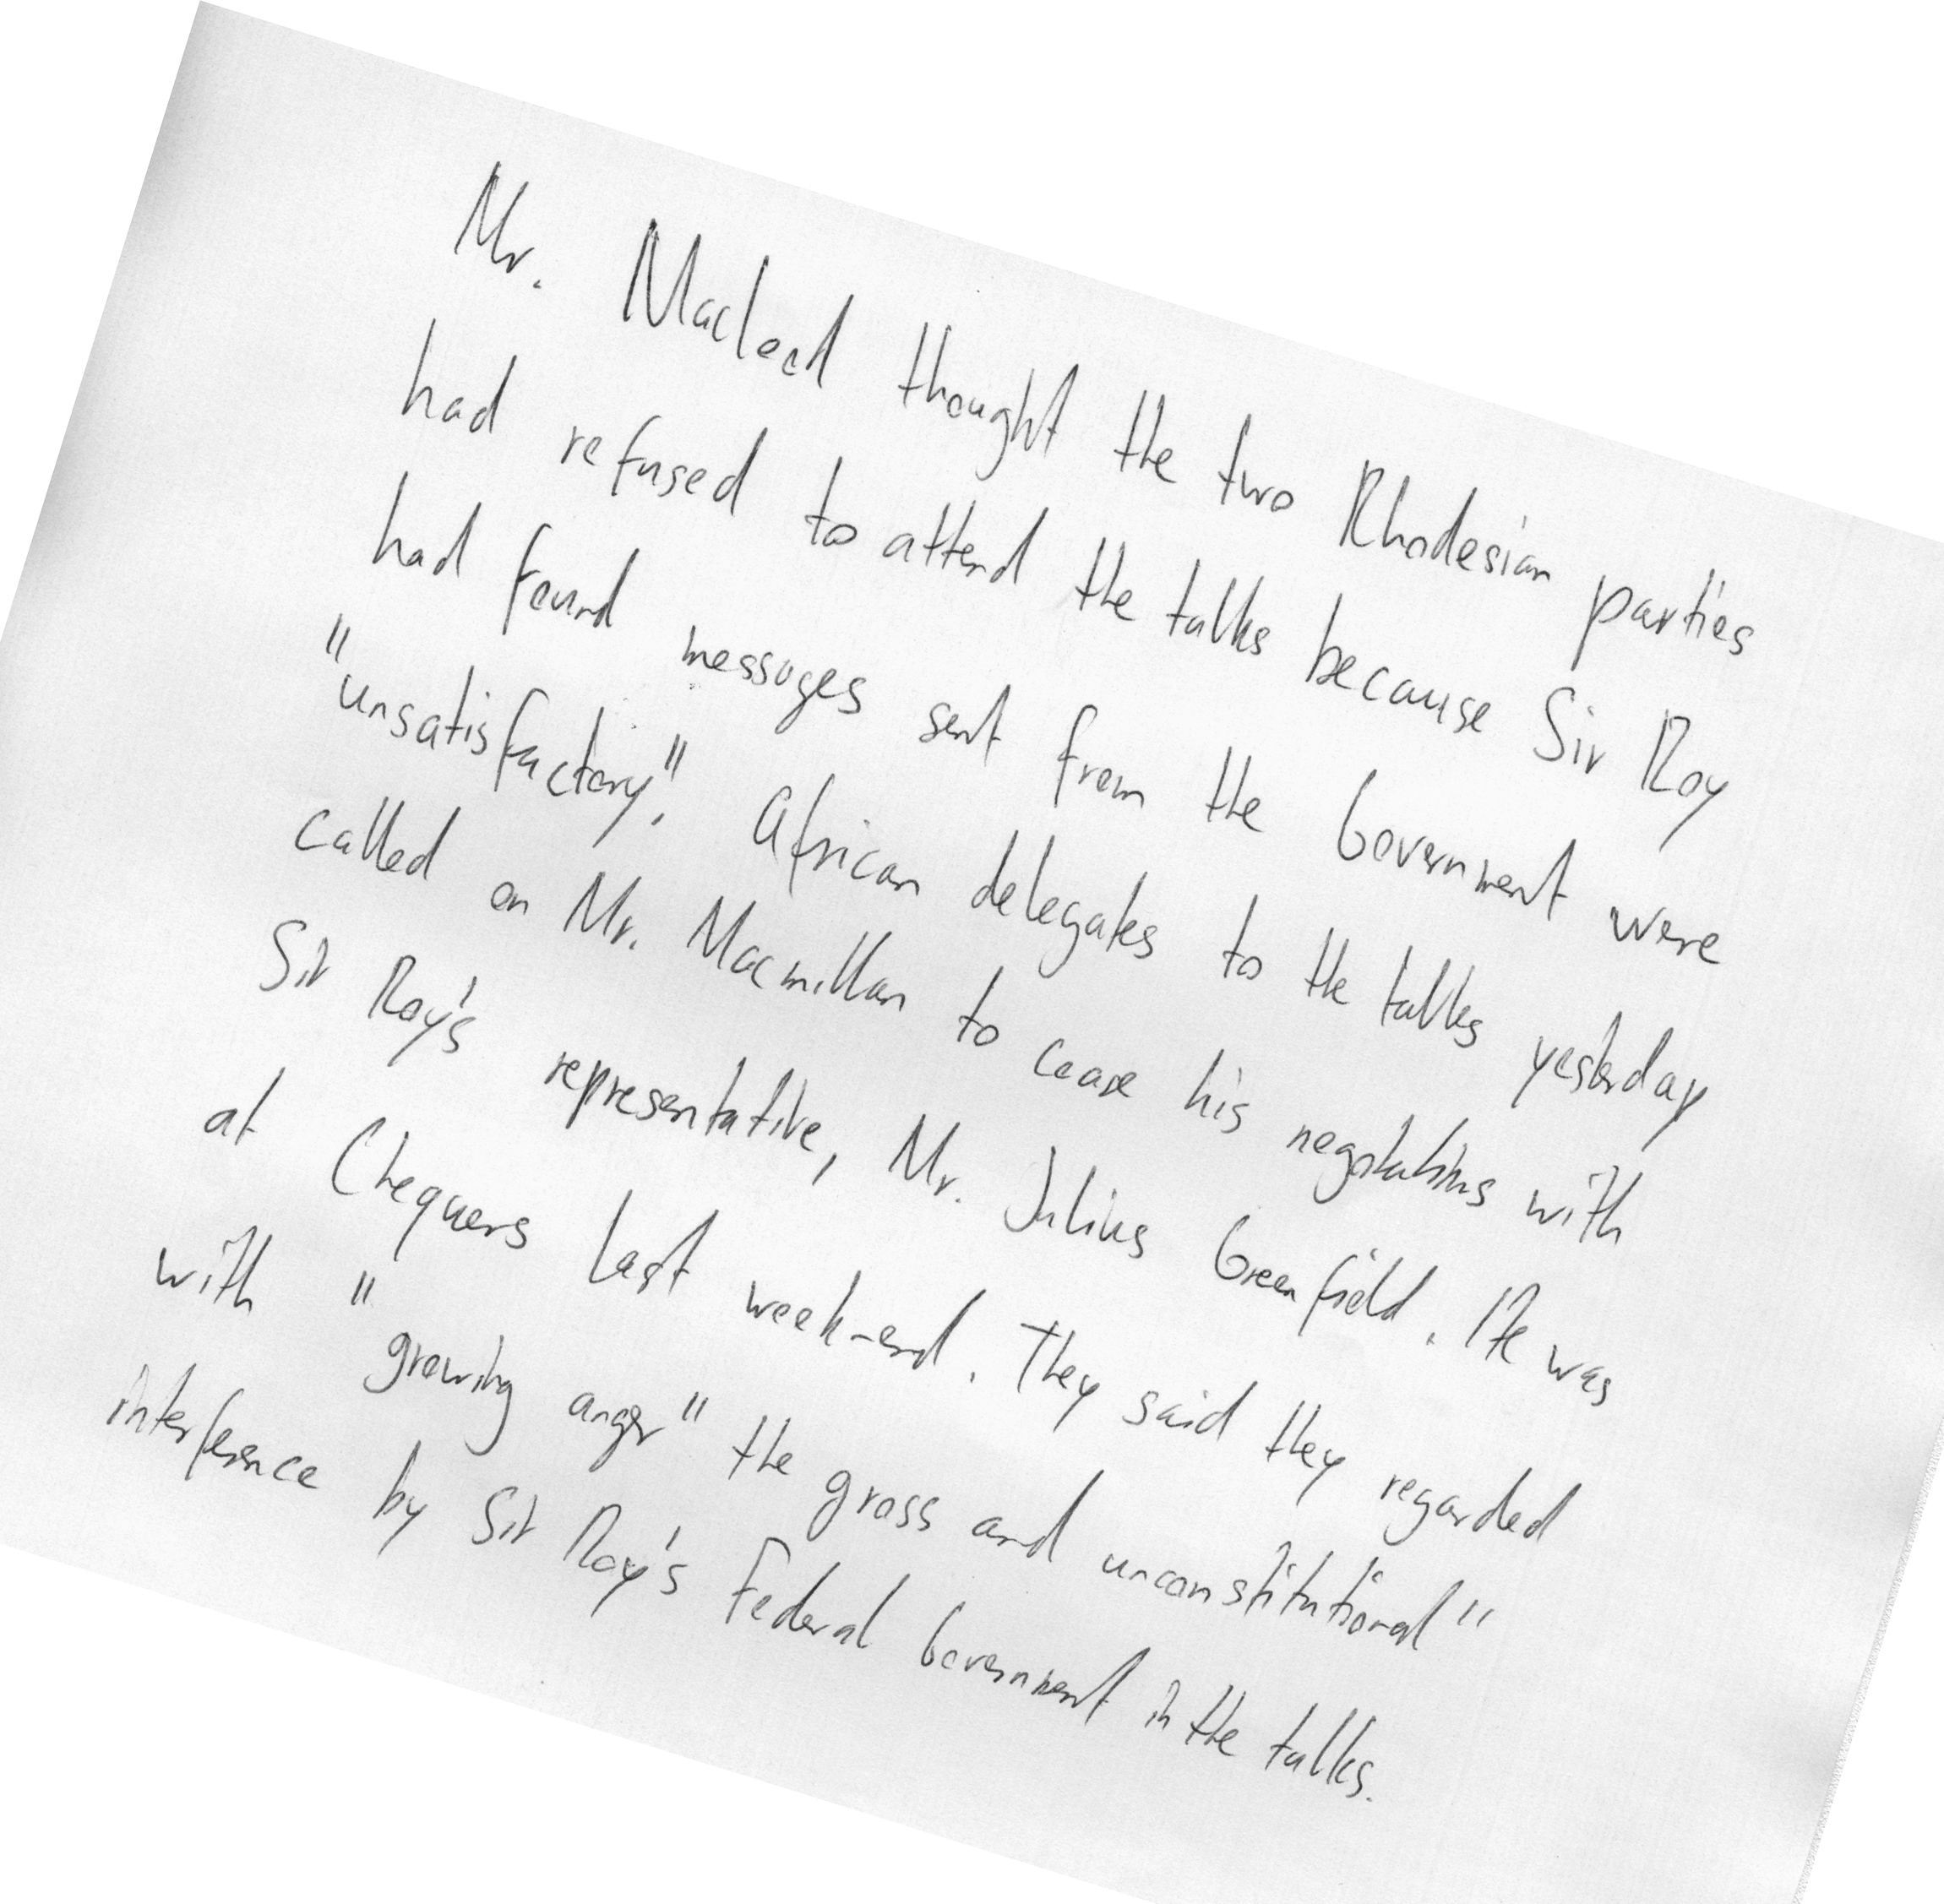 Mr. Macleod thought the two Rhodesian parties
had refused to attend the talks because Sir Roy
had found messages sent from the Government were
"unsatisfactory". African delegates to the talks yesterday
called on Mr. Macmillan to cease his negotiations with
Sir Roy's representative, Mr. Julius Greenfield. He was
at Chequers last week-end. They said they regarded
with "growing anger" the gross and unconstitutional"
interference by Sir Roy's Federal Government in the talks.